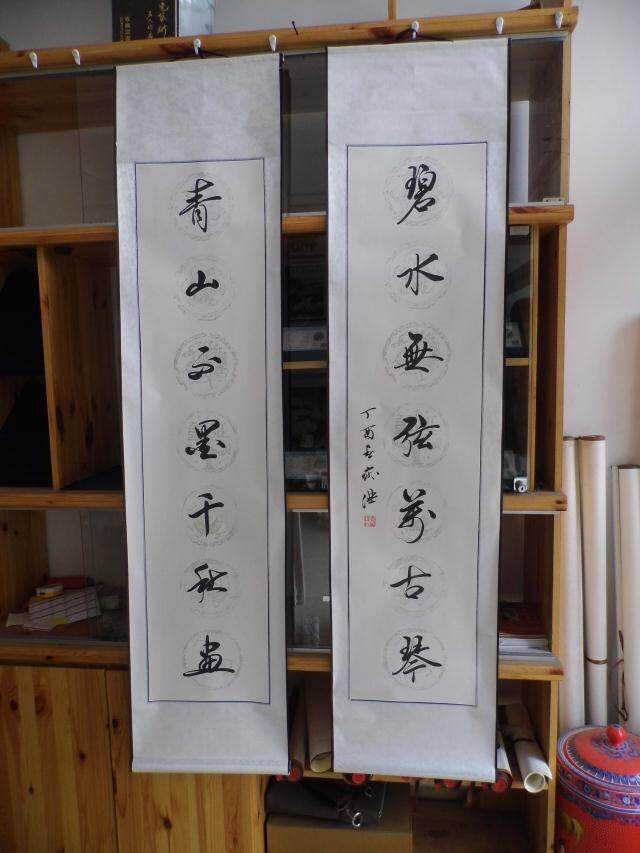 青山不墨千秋畫
碧水無弦萬古琴
丁酉